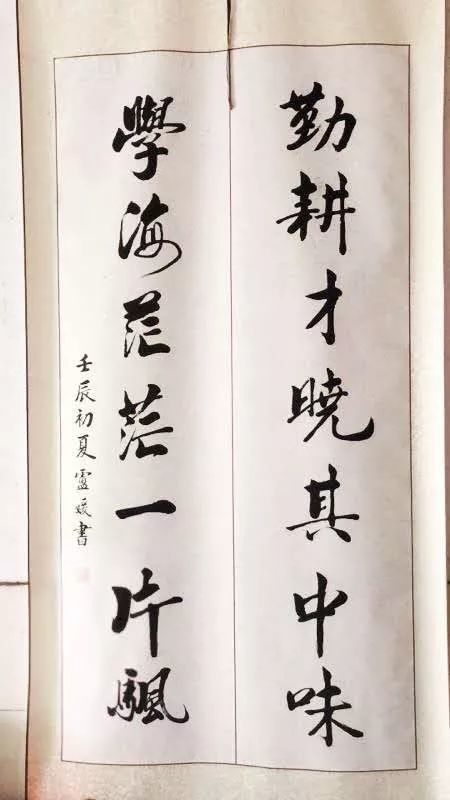 勤耕才曉其中味
學海茫茫一片颿
壬辰初夏盧媛書